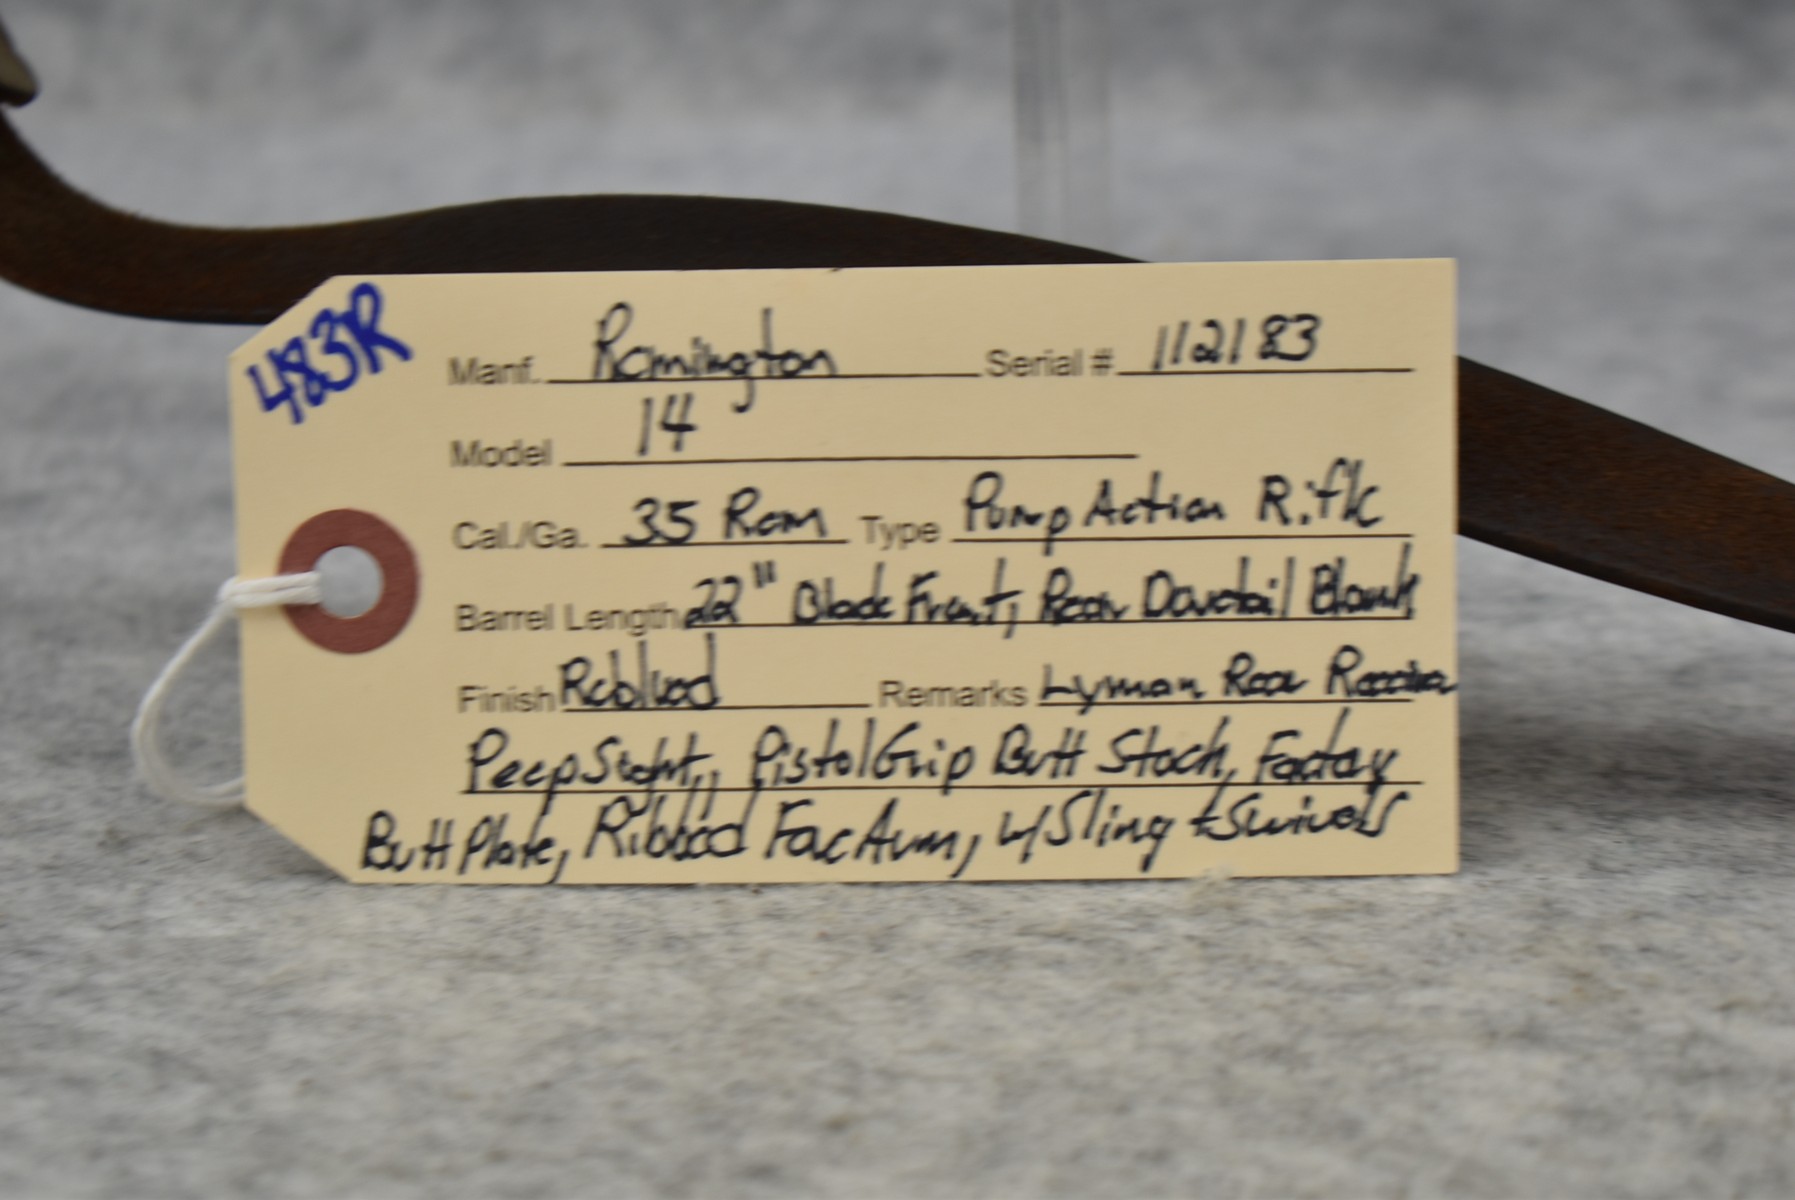 483R
Manf. Remington Serial # 112183
Model 14
Cal./Ga. 35 Rem Type Pump Action Rifle
Barrel Length 22" Blade Front, Rear Dovetail Blank
Finish Reblued Remarks Lyman Rear Receiver
Peep Sight, Pistol Grip Butt Stock, Factory
Butt Plate, Ribbed ForArm, w/ Sling + Swivels